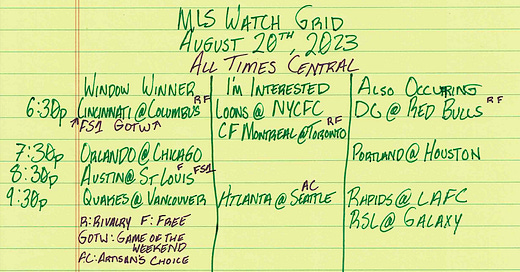 MLS WATCH GRID
AUGUST 20TH, 2023
ALL TIMES CENTRAL
WINDOW WINNER I'M INTERESTED ALSO OCCURING
6:30p CINCINNATI @ COLUMBUS RF LOONS @ NYCFC DC @ RED BULLS RF
↑FS1 GOTW↑ CF MONTREAL @ TORONTO RF
7:30p ORLANDO @ CHICAGO PORTLAND @ HOUSTON
8:30p AUSTIN @ ST LOUIS F FS1
9:30p QUAKES @ VANCOUVER ATLANTA @ SEATTLE AC RAPIDS @ LAFC
RSL @ GALAXY
R: RIVALRY F: FREE
GOTW: GAME OF THE
WEEKEND
AC: ARTISAN'S CHOICE